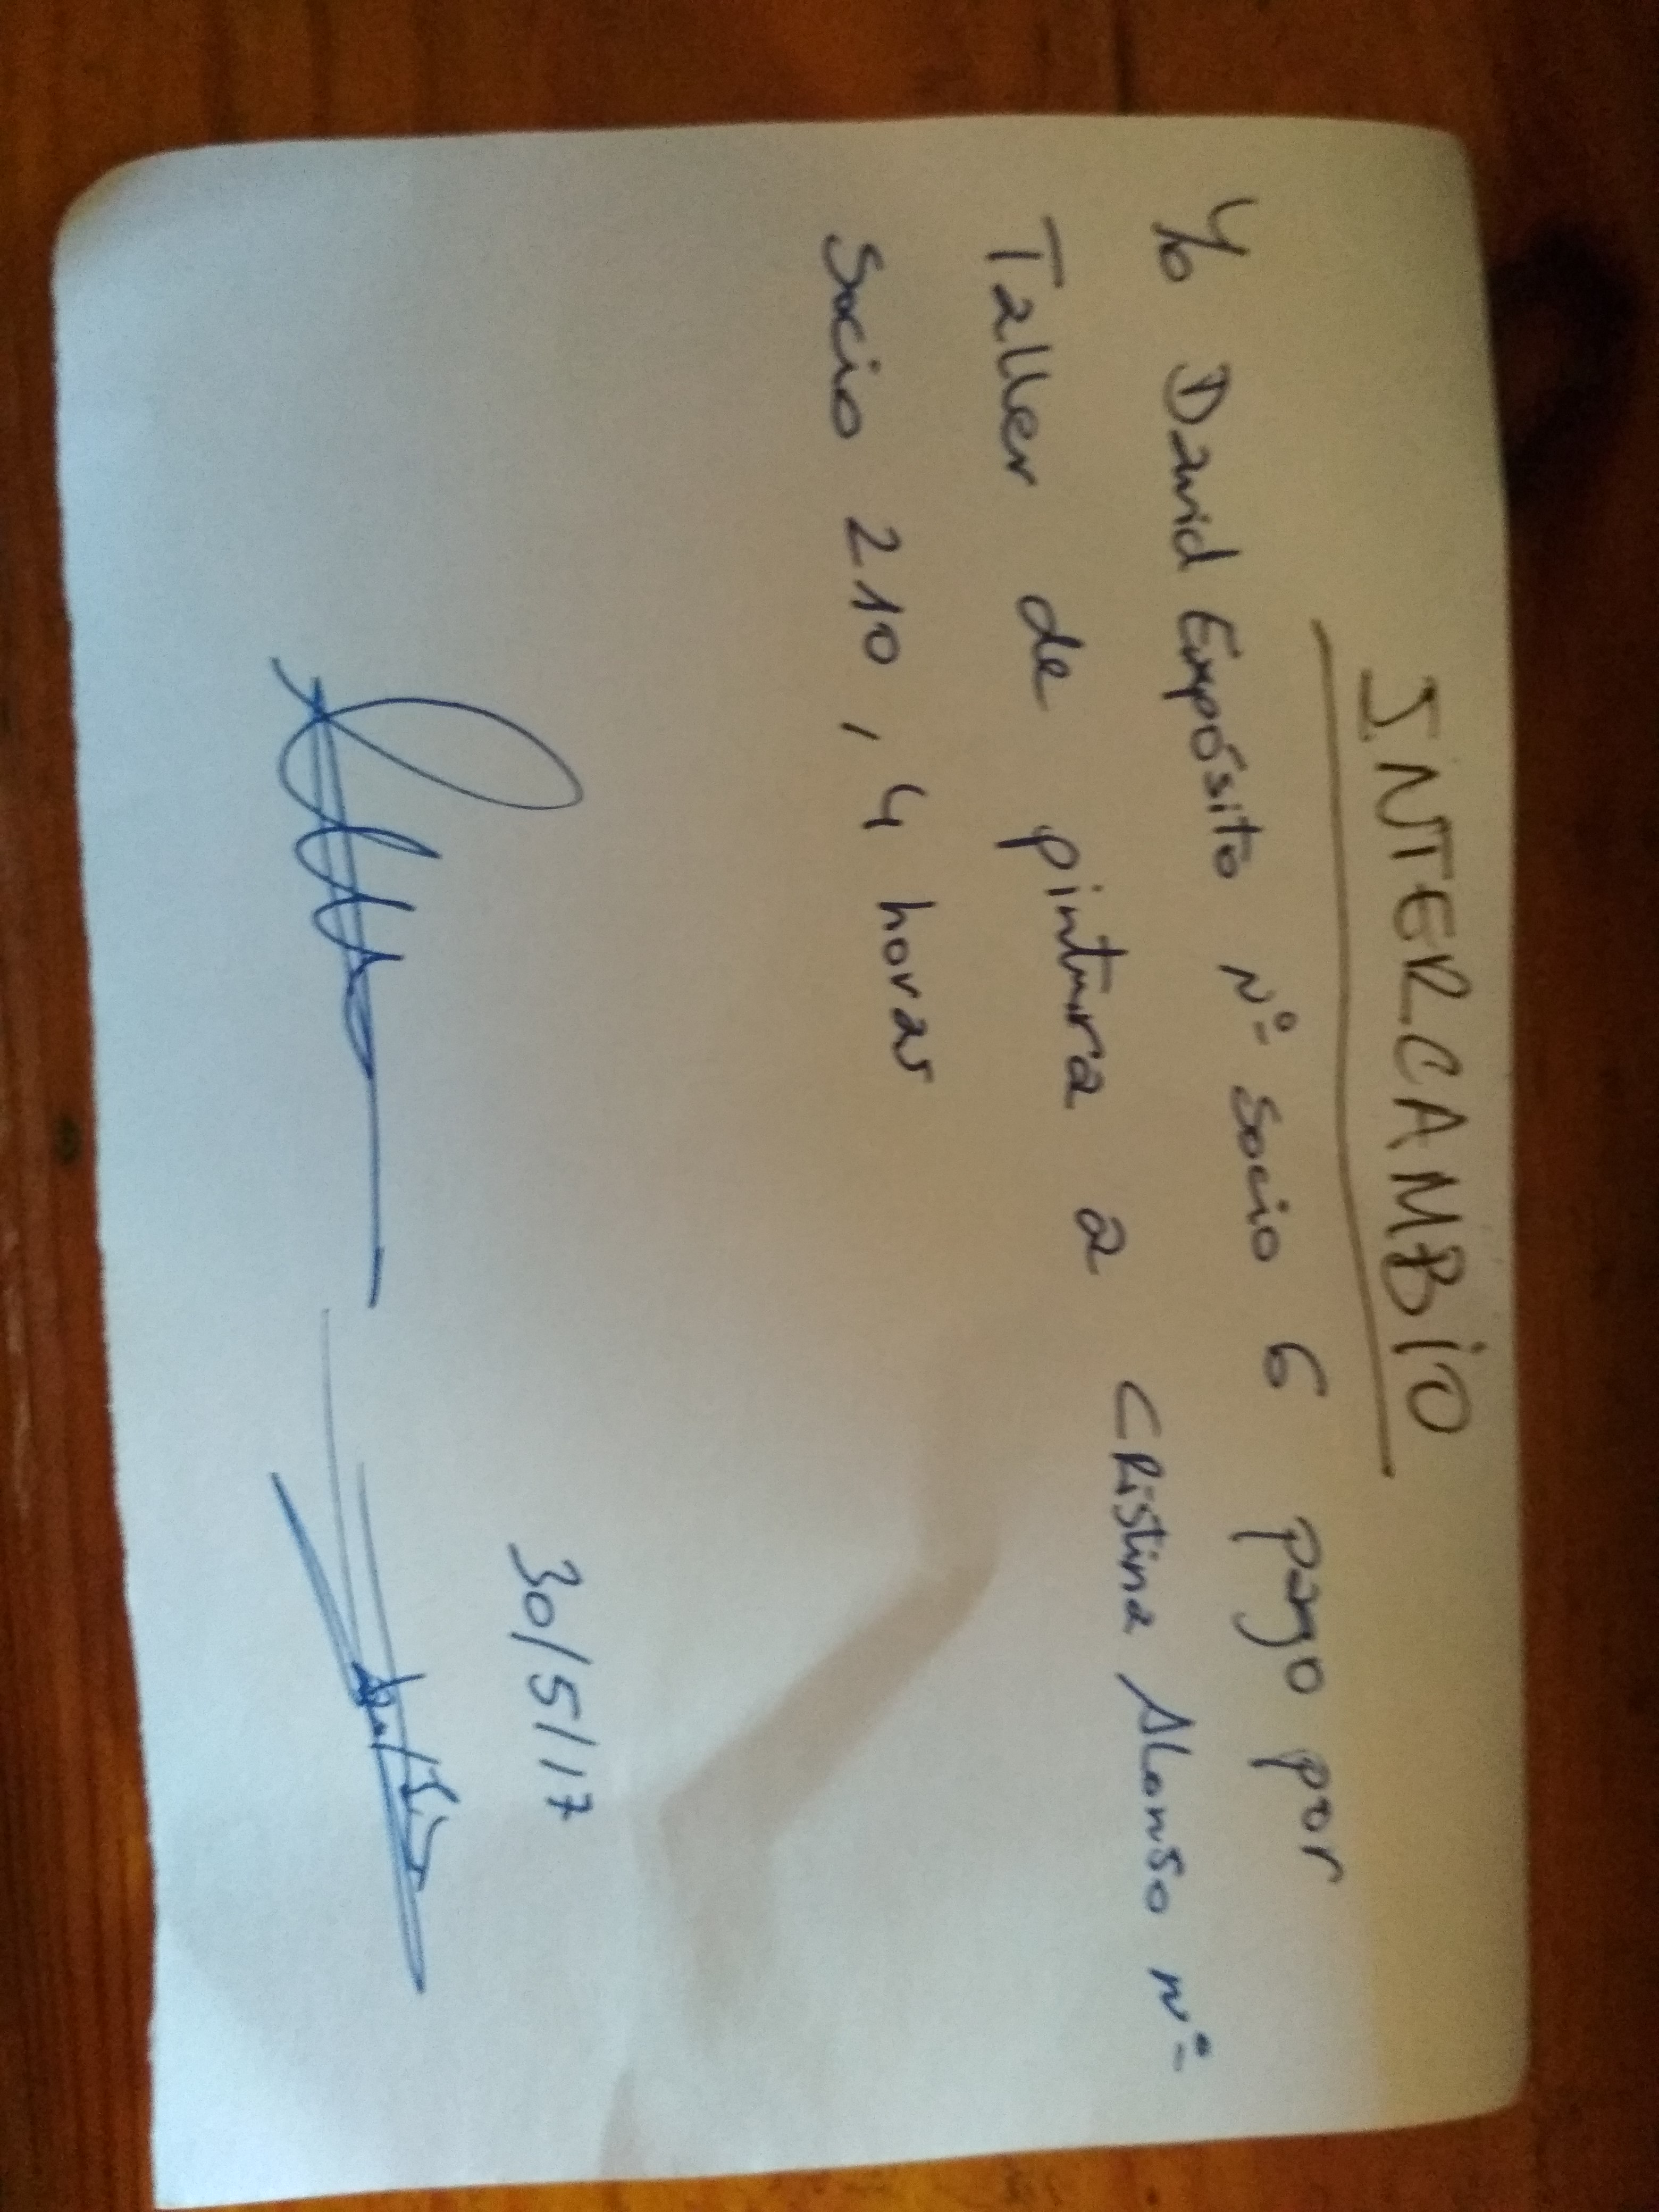 INTERCAMBIO
Yo David Expósito Nº Socio 6 pago por
Taller de pintura a Cristina Alonso nº
Socio 210, 4 horas
30/5/17